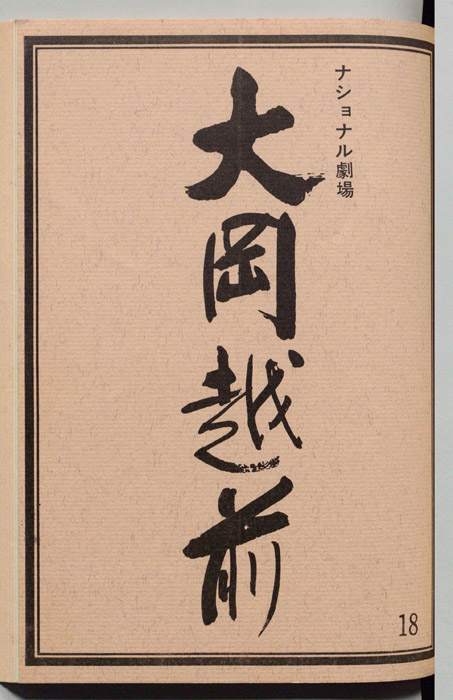 ナショナル劇場
大岡越前
18